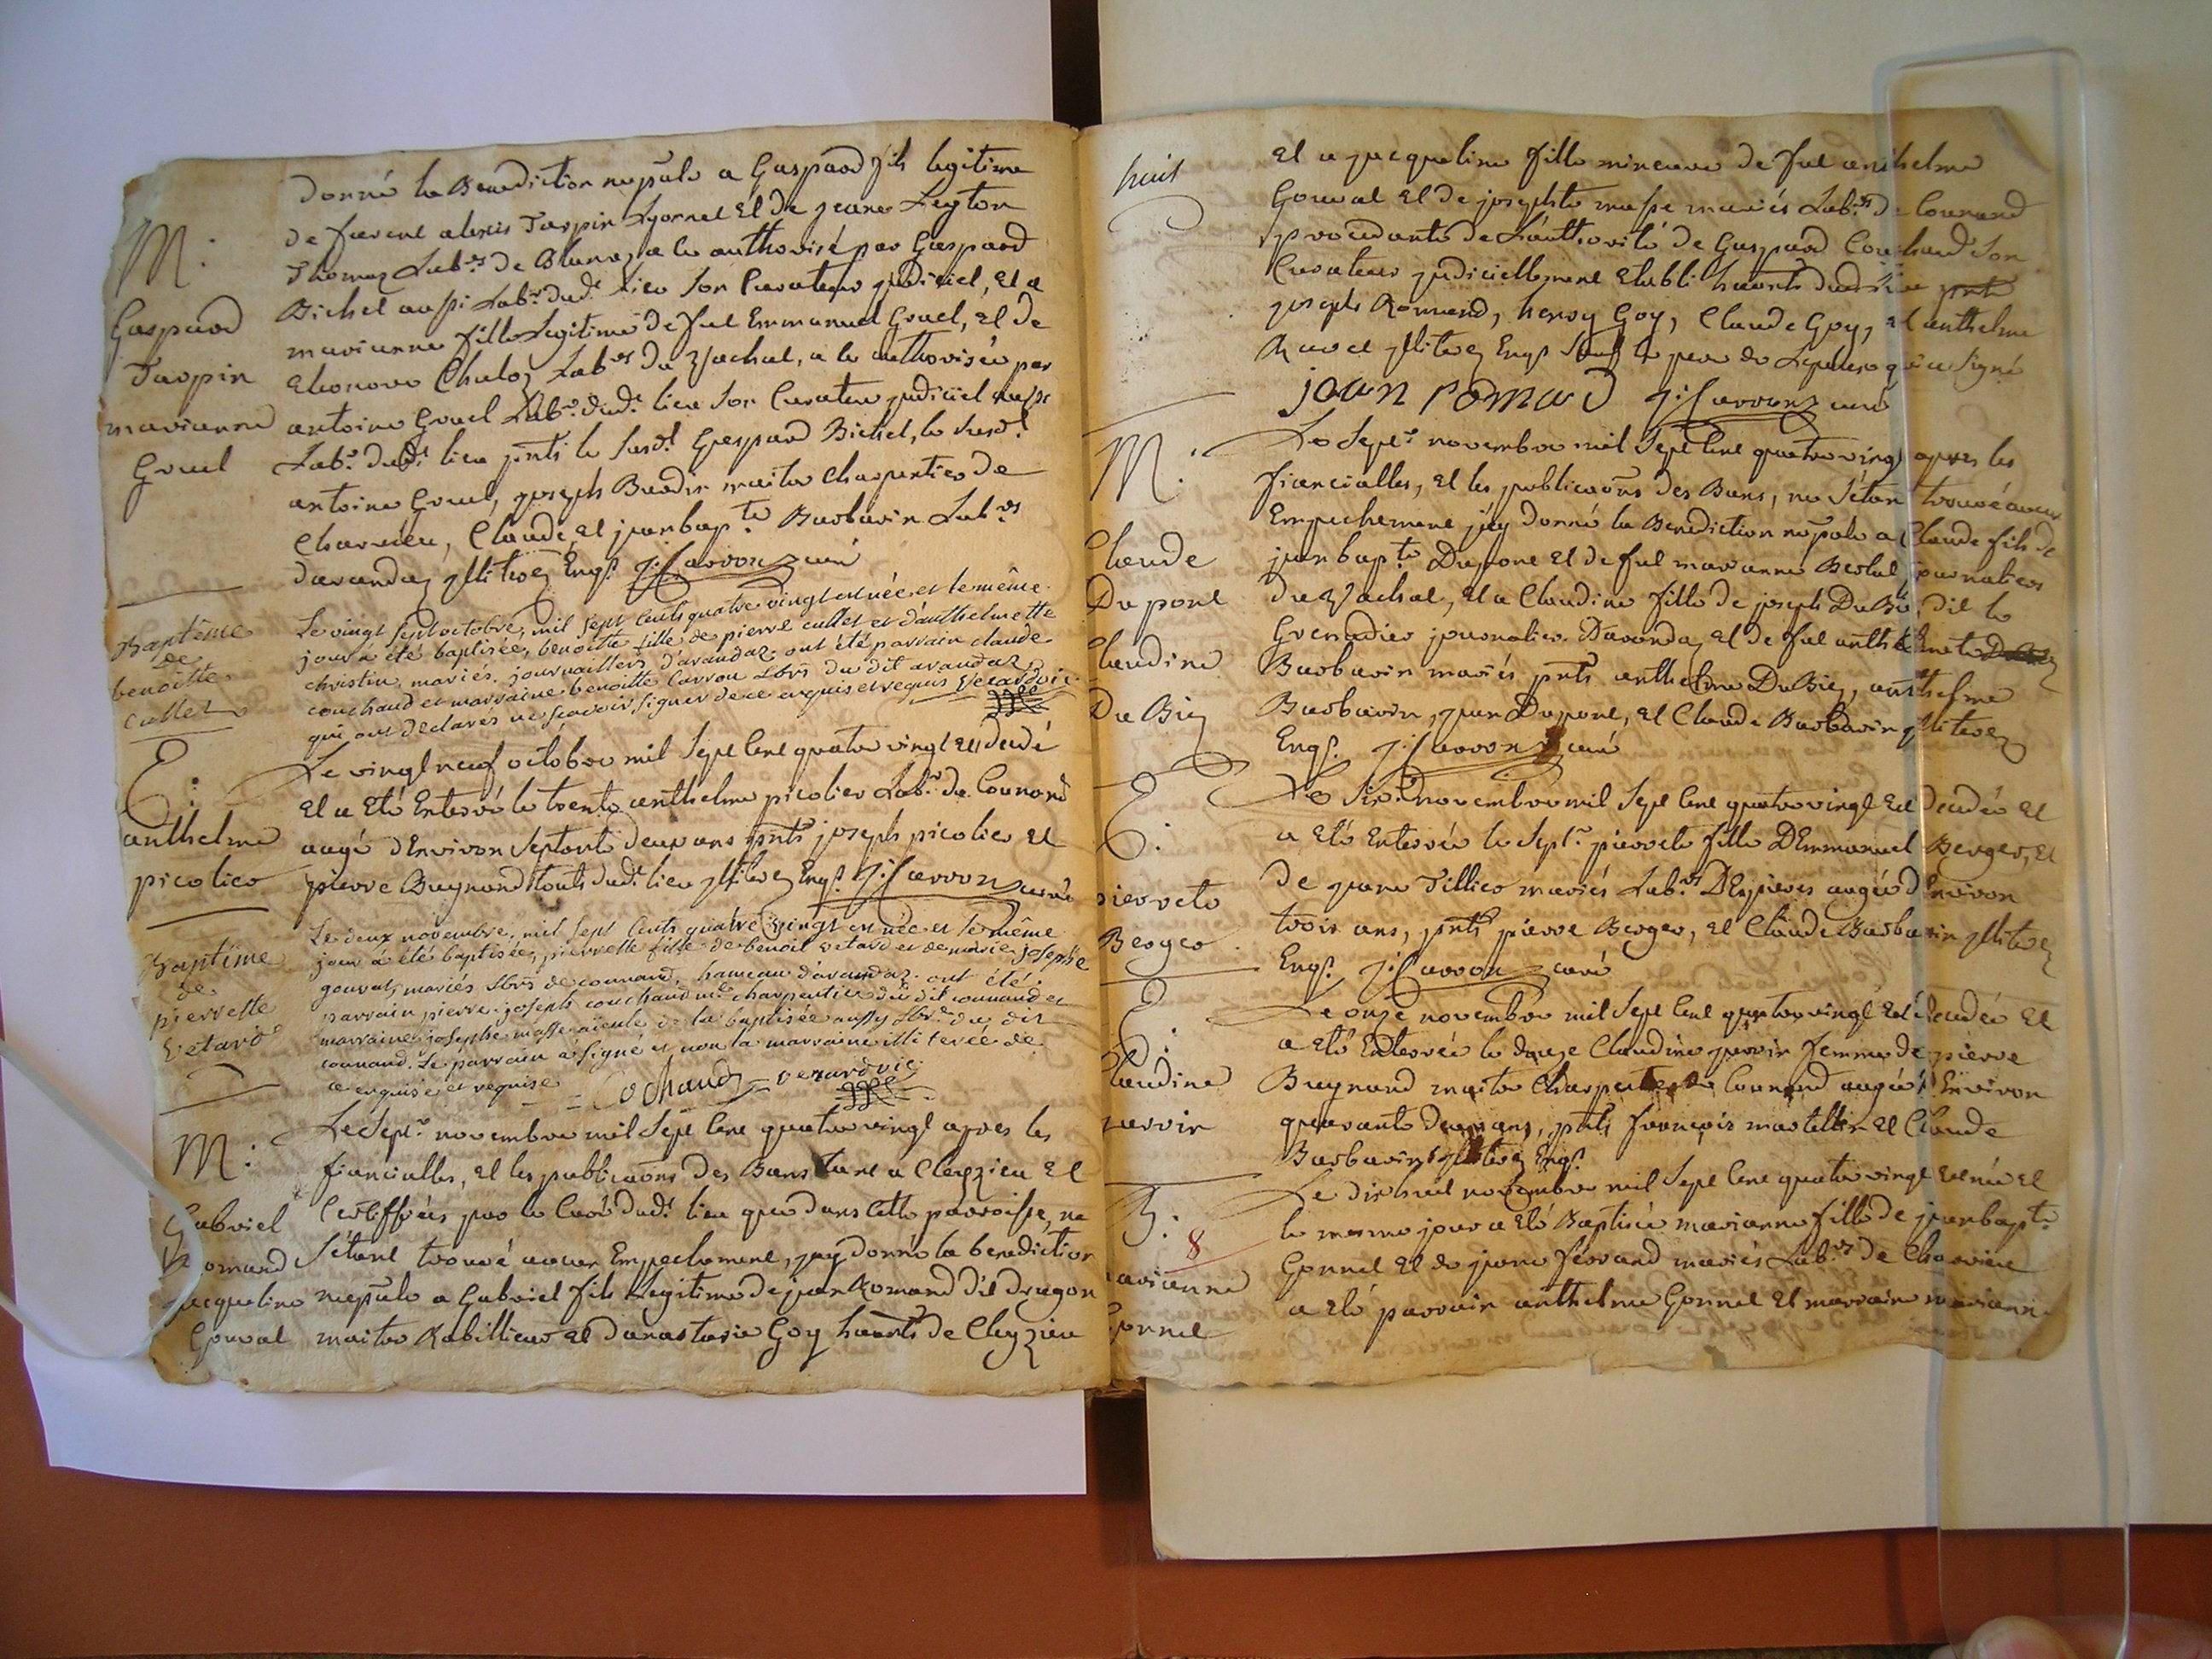 donné la Benediction nup̃ale a Gaspard fils legitime
M: de
Gaspard
Tarpin
marianne
Gruel
Thomaz Lab.rs de Blanaz a ce authorisé par Gaspard
Bichel aussi Lab.r dud.t lieu son Curateur judiciel, et a
marianne fille Legitime de fut Emmanuel Gruel, et de
Eleonore Chuloz Lab.rs du Vachat, a ce authorisée par
antoine Gruel Lab.r dud.t lieu son Curateur judiciel aussi
Lab.r dud.t lieu pnts le susd.t Gaspard Bichel, le susd.t
antoine Gruel, joseph Bardin maitre charpentier de
Charvieu, Claude, et jeanbap.te Barbarin Lab.rs
darandaz illiterez Enq.s J: Carron curé
Baptême
de
benoitte
Cullet
Le vingt sept octobre, mil sept Cents quatre vingt est née et le même
jour a été baptisée, benoitte fille de pierre cullet et d'anthelmette
christin, mariés, journailliers d'arandaz. ont été parrain claude
couchaud et marraine benoitte Carron Lbrs du dit arandaz
qui ont déclarés ne sçavoir signer de ce enquis et requis Verardvic.
E:
anthelme
picolier
Le vingt neuf octobre mil Sept Cent quatre vingt est decedé
et a Eté Enterré le trente anthelme picolier Lab.r de Counand
augé dEnviron Septante deux ans pnts joseph picolier et
pierre Buynand touts dud.t lieu illiterez Enq.s J: Carron curé
Baptême
de
pierrette
Vetard
Le deux novembre, mil sept Cents quatre vingt est née et le même
jour a été baptisée, pierrette fille de benoit vetard et de marie josephe
gouvat, mariés Lbrs de counand, hameau d'arandaz. ont été
parrain pierre joseph couchaud m.e charpentier du dit counand et
marraine josephe masse aïeule de la baptisée aussy Lbre du dit
counand. Le parrain a signé et non la marraine illiterée de
ce enquise et requise. Cochaud verardvic
M:
Gabriel
Romand
jacqueline
Gouvat
Le Sept.e novembre mil Sept Cent quatre vingt apres les
fiancialles, et les publicaõns des Bans tant a Cleyzieu et
Certiffiées par le Curé dud.t lieu que dans cette parroisse, ne
S'étant trouvé aucun Empechement, jay donné la benediction
nup̃ale a Gabriel fils Legitime de jean Romand dit dragon
maitre Rabillieur et danastasie Goy haants de Cleyzieu
huit
et a jacqueline fille mineure de fut anthelme
Gouvat et de josephte masse mariés Lab.rs de Counand
procedante de L'authorité de Gaspard Couchaud Son
Curateur judiciellement Etabli haants dud lieu pnts
joseph Romand, henry Goy, Claude Goy, et anthelme
Ravet illiterez Enq.s Sauf le pere de Lepoux qui a Signé
jean romand J: Carron curé
M:
Claude
Dupont
Claudine
Du Biez
Le Sept.e novembre mil Sept Cent quatre vingt apres les
fiancialles, et les publicaõns des Bans, ne S'étant trouvé aucun
Empechement j'ay donné la Benediction nup̃ale a Claude fils de
jeanbap.te Dupont et de fut marianne Bertet, journaliers
du Vachat, et a Claudine fille de joseph DuBié dit le
Grenadier journalier Darandaz et de fut anthelmete
Barbarin mariés pnts anthelme DuBiez, anthelme
Barbarin, jean Dupont, et Claude Barbarin illiterez
Enq.s J: Carron curé
E:
pierrete
Berger
Le Six.e novembre mil Sept Cent quatre vingt est decedée et
a Eté Enterrée le Sept.e pierrete fille DEmmanuel Berger, et
de jeane Tillier mariés Lab.rs DEspieres augée dEnviron
trois ans, pnts pierre Berger, et Claude Barbarin illiterez
Enq.s J: Carron curé
E:
Claudine
jarvin
Le onze novembre mil Sept Cent quatre vingt est decedée et
a Eté Enterrée le douze Claudine jarvin femme de pierre
Buynand maitre Charpentier de Counand augée dEnviron
quarante deux ans, pnts françois martellin et Claude
Barbarin illiterez Enq.s
B:
8
marianne
Gonnet
Le dix huit novembre mil Sept Cent quatre vingt est née et
le mesme jour a Eté Baptisée marianne fille de jeanbapt.e
Gonnet et de jeane ferrand mariés Lab.rs de Charvieu
a Eté parrain anthelme Gonnet et marraine marianne